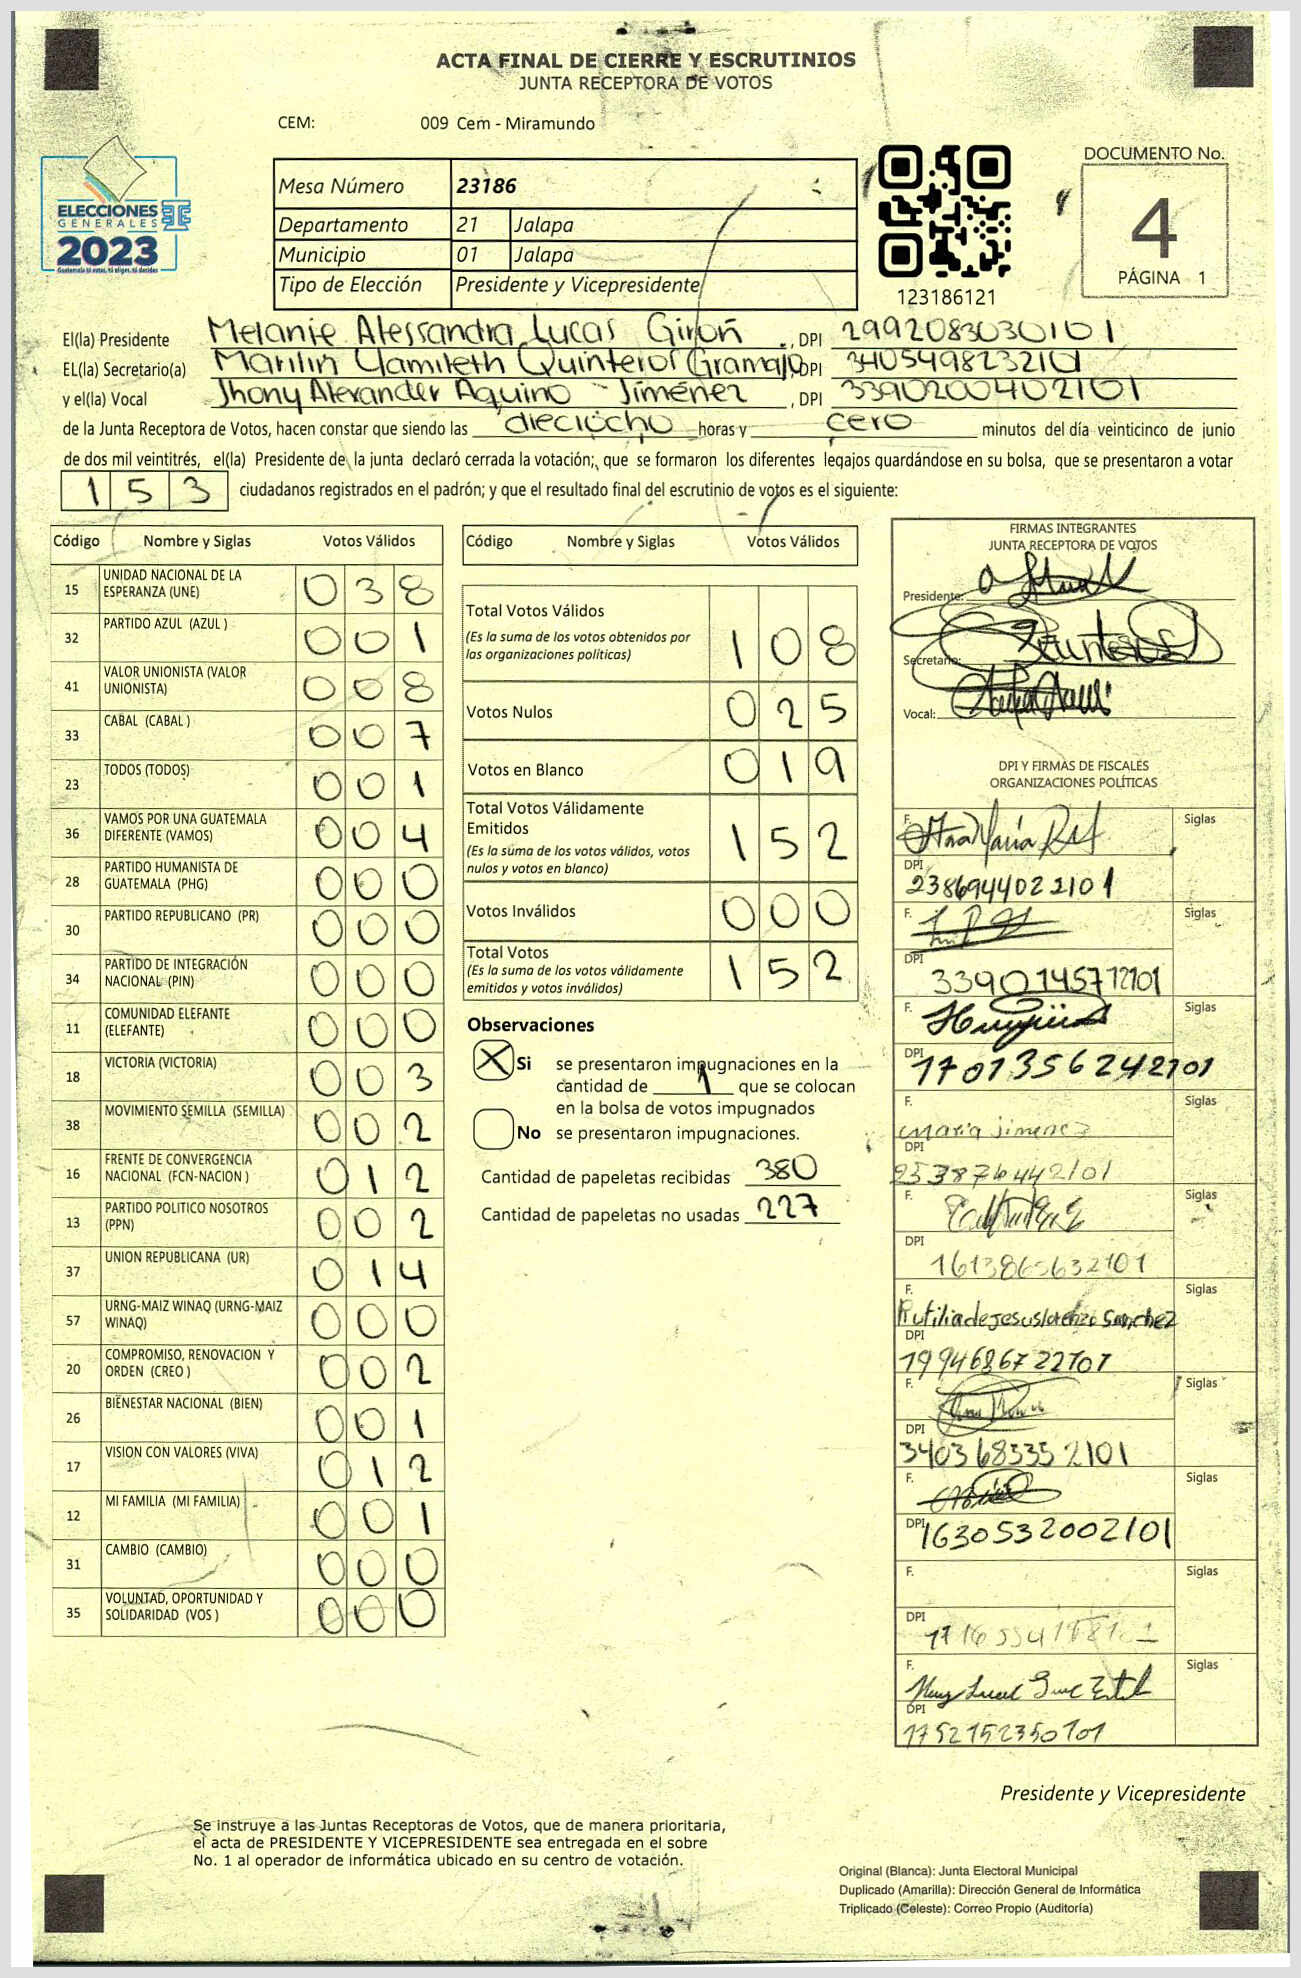 ACTA FINAL DE CIERRE Y ESCRUTINIOS
JUNTA RECEPTORA DE VOTOS
CEM: 009 Cem - Miramundo
ELECCIONES
GENERALES
2023
Guatemala tú votas, tú eliges, tú decides
Mesa Número 23186
Departamento 21 Jalapa
Municipio 01 Jalapa
Tipo de Elección Presidente y Vicepresidente
123186121
DOCUMENTO No.
4
PÁGINA 1
El(la) Presidente Melanie Alessandra Lucas Girón, DPI 2992083030101
EL(la) Secretario(a) Marilin Yamileth Quinteros Gramajo, DPI 3405498232101
y el(la) Vocal Jhony Alexander Aquino Jiménez, DPI 3390200402101
de la Junta Receptora de Votos, hacen constar que siendo las dieciocho horas y cero minutos del día veinticinco de junio
de dos mil veintitrés, el(la) Presidente de la junta declaró cerrada la votación; que se formaron los diferentes legajos guardándose en su bolsa, que se presentaron a votar
153 ciudadanos registrados en el padrón; y que el resultado final del escrutinio de votos es el siguiente:
Código Nombre y Siglas Votos Válidos
15 UNIDAD NACIONAL DE LA ESPERANZA (UNE) 038
32 PARTIDO AZUL (AZUL ) 001
41 VALOR UNIONISTA (VALOR UNIONISTA) 008
33 CABAL (CABAL ) 007
23 TODOS (TODOS) 001
36 VAMOS POR UNA GUATEMALA DIFERENTE (VAMOS) 004
28 PARTIDO HUMANISTA DE GUATEMALA (PHG) 000
30 PARTIDO REPUBLICANO (PR) 000
34 PARTIDO DE INTEGRACIÓN NACIONAL (PIN) 000
11 COMUNIDAD ELEFANTE (ELEFANTE) 000
18 VICTORIA (VICTORIA) 003
38 MOVIMIENTO SEMILLA (SEMILLA) 002
16 FRENTE DE CONVERGENCIA NACIONAL (FCN-NACION ) 012
13 PARTIDO POLITICO NOSOTROS (PPN) 002
37 UNION REPUBLICANA (UR) 014
57 URNG-MAIZ WINAQ (URNG-MAIZ WINAQ) 000
20 COMPROMISO, RENOVACION Y ORDEN (CREO ) 002
26 BIENESTAR NACIONAL (BIEN) 001
17 VISION CON VALORES (VIVA) 012
12 MI FAMILIA (MI FAMILIA) 001
31 CAMBIO (CAMBIO) 000
35 VOLUNTAD, OPORTUNIDAD Y SOLIDARIDAD (VOS ) 000
Código Nombre y Siglas Votos Válidos
Total Votos Válidos 108
(Es la suma de los votos obtenidos por
las organizaciones políticas)
Votos Nulos 025
Votos en Blanco 019
Total Votos Válidamente
Emitidos 152
(Es la suma de los votos válidos, votos
nulos y votos en blanco)
Votos Inválidos 000
Total Votos 152
(Es la suma de los votos válidamente
emitidos y votos inválidos)
Observaciones
X Si se presentaron impugnaciones en la
cantidad de 1 que se colocan
en la bolsa de votos impugnados
No se presentaron impugnaciones.
Cantidad de papeletas recibidas 380
Cantidad de papeletas no usadas 227
FIRMAS INTEGRANTES
JUNTA RECEPTORA DE VOTOS
Presidente:
Secretario:
Vocal:
DPI Y FIRMAS DE FISCALES
ORGANIZACIONES POLÍTICAS
F. Siglas
DPI
2386944022101
F. Siglas
DPI
3390145712101
F. Siglas
DPI
1701356242101
F. Siglas
maria jimenez
DPI
2538764442101
F. Siglas
DPI
1613865632101
F. Siglas
Rutilia de Jesus lorenzo Sanchez
DPI
1994686722101
F. Siglas
DPI
3403683352101
F. Siglas
DPI
1630532002101
F. Siglas
DPI
F. Siglas
DPI
1752152350101
Presidente y Vicepresidente
Se instruye a las Juntas Receptoras de Votos, que de manera prioritaria,
el acta de PRESIDENTE Y VICEPRESIDENTE sea entregada en el sobre
No. 1 al operador de informática ubicado en su centro de votación.
Original (Blanca): Junta Electoral Municipal
Duplicado (Amarilla): Dirección General de Informática
Triplicado (Celeste): Correo Propio (Auditoría)